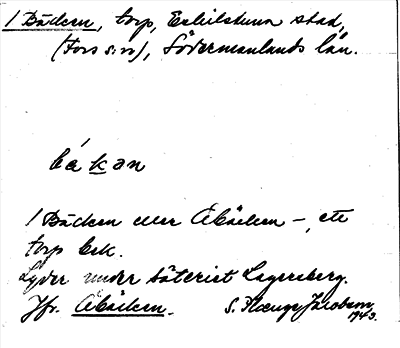 1 Bäcken, torp, Eskilstuna stad,
(Fors s:n), Södermanlands län.
bákan
1 Bäcken eller Åbäcken –, ett
torp bek.
Lyder under säteriet Lagersberg.
Jfr. Åbäcken. S. Jacobson,
1943.